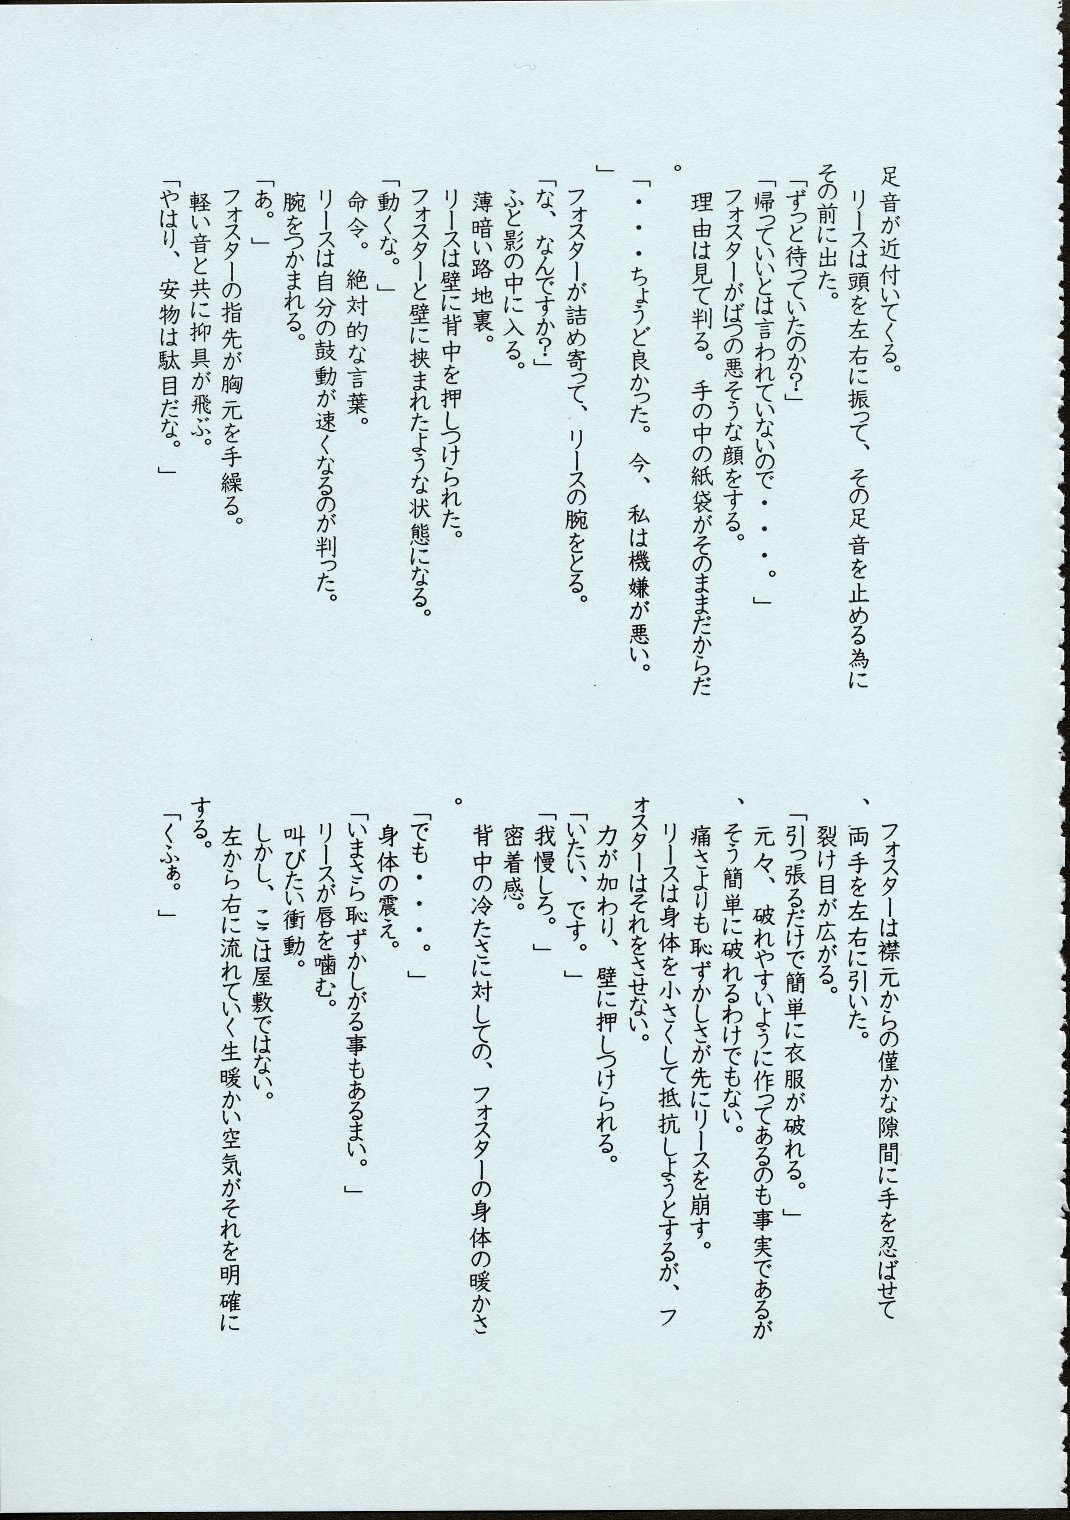 足音が近付いてくる。
リースは頭を左右に振って、その足音を止める為に
その前に出た。
「ずっと待っていたのか？」
「帰っていいとは言われていないので・・・。」
フォスターがばつの悪そうな顔をする。
理由は見て判る。手の中の紙袋がそのままだからだ
。
「・・・ちょうど良かった。今、私は機嫌が悪い。
」
フォスターが詰め寄って、リースの腕をとる。
「な、なんですか？」
ふと影の中に入る。
薄暗い路地裏。
リースは壁に背中を押しつけられた。
フォスターと壁に挟まれたような状態になる。
「動くな。」
命令。絶対的な言葉。
リースは自分の鼓動が速くなるのが判った。
腕をつかまれる。
「あ。」
フォスターの指先が胸元を手繰る。
軽い音と共に抑具が飛ぶ。
「やはり、安物は駄目だな。」
フォスターは襟元からの僅かな隙間に手を忍ばせて
、両手を左右に引いた。
裂け目が広がる。
「引っ張るだけで簡単に衣服が破れる。」
元々、破れやすいように作ってあるのも事実であるが
、そう簡単に破れるわけでもない。
痛さよりも恥ずかしさが先にリースを崩す。
リースは身体を小さくして抵抗しようとするが、フ
ォスターはそれをさせない。
力が加わり、壁に押しつけられる。
「いたい、です。」
「我慢しろ。」
密着感。
背中の冷たさに対しての、フォスターの身体の暖かさ
。
「でも・・・。」
身体の震え。
「いまさら恥ずかしがる事もあるまい。」
リースが唇を噛む。
叫びたい衝動。
しかし、ここは屋敷ではない。
左から右に流れていく生暖かい空気がそれを明確に
する。
「くふぁ。」